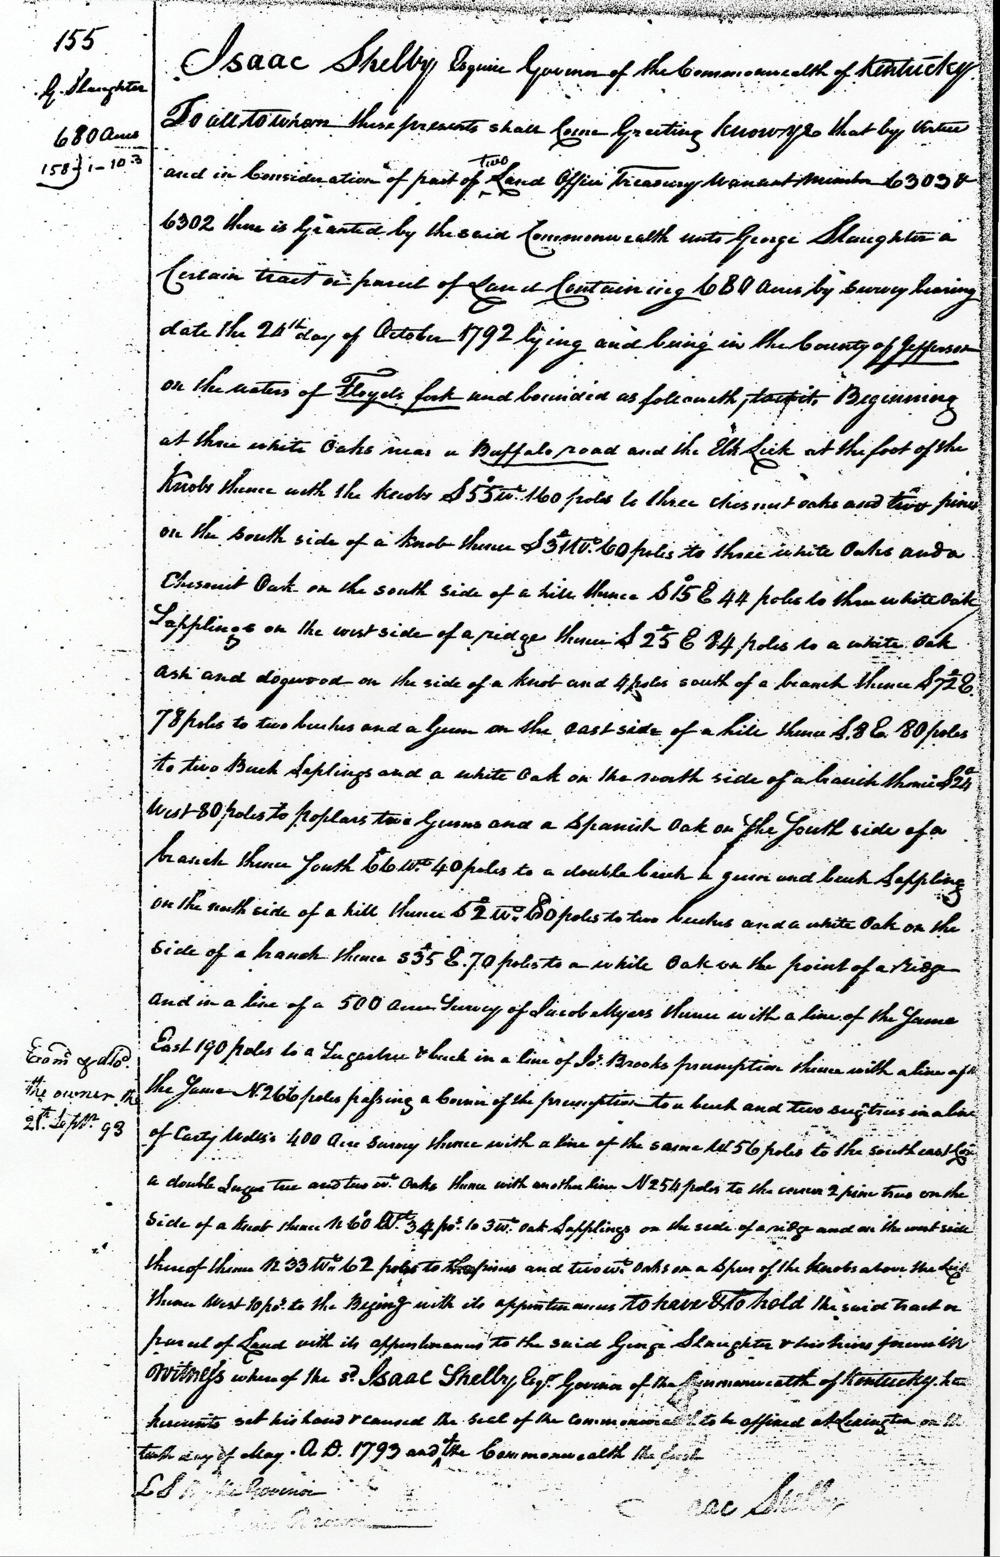 155
G. Slaughter
680 Acres
158 } 1-103
Isaac Shelby Esquire Governor of the Commonwealth of Kentucky
To all to whom these presents shall Come Greeting Know ye that by Virtue
and in Consideration of part of two Land Office Treasury Warrant Number 6303 &
6302 there is Granted by the said Commonwealth unto George Slaughter a
Certain tract or parcel of Land Containing 680 Acres by Survey bearing
date the 24th day of October 1792 lying and being in the County of Jefferson
on the waters of Floyds fork and bounded as followeth, towit, Beginning
at three white Oaks near a Buffalo road and the Elk Lick at the foot of the
Knobs thence with the Knobs S 55 Wt. 160 poles to three chesnut oaks and two pines
on the South side of a Knob thence Wt. 60 poles to three white Oaks and a
Chesnut Oak on the south side of a hill thence S 15 E 44 poles to three white Oak
Sapplings on the west side of a ridge thence S 25 E 84 poles to a white Oak
ash and dogwood on the side of a Knob and 4 poles south of a branch thence S 72 E
78 poles to two beeches and a Gum on the east side of a hill thence S. 8 E. 80 poles
to two Beech Saplings and a white Oak on the north side of a branch thence S 24
West 80 poles to poplars two Gums and a Spanish Oak on the South side of a
branch thence South 66 Wt. 40 poles to a double beech a gum and beech Sappling
on the north side of a hill thence S 2 Wt. 80 poles to two beeches and a white Oak on the
side of a branch thence S 35 E. 70 poles to a white Oak on the point of a ridge
and in a line of a 500 Acre Survey of Jacob Myers thence with a line of the Same
East 190 poles to a Sugartree & beech in a line of Js. Brooks preemption thence with a line of
the Same N. 266 poles passing a Corner of the preemption to a beech and two sugtrees in a line
of Carty Wells's 400 Acre Survey thence with a line of the same W 56 poles to the southeast Cor
a double Sugar tree and two wt. Oaks thence with another line N 254 poles to the corner 2 pine trees on the
side of a Knob thence N 60 Wt. 34 pos. to 3 wt. Oak Sapplings on the side of a ridge and on the west side
thereof thence N 33 Wt. 62 poles to pines and two wt. Oaks on a Spur of the Knobs above the Lick
thence West 10 po. to the Beging with its appurtenances to have & to hold the said tract or
parcel of Land with its appurtenances to the said George Slaughter & his heirs forever In
Witness whereof the sd. Isaac Shelby Esqr. Govenor of the Commonwealth of Kentucky hath
hereunto set his hand & caused the seal of the Commonwealth to be affixed at Lexington on the
day of May. A.D. 1793 and of the Commonwealth the first
LS By the Govenor
Isaac Shelby
Brown
Examd. & dld.
the owner the
Septr. 93